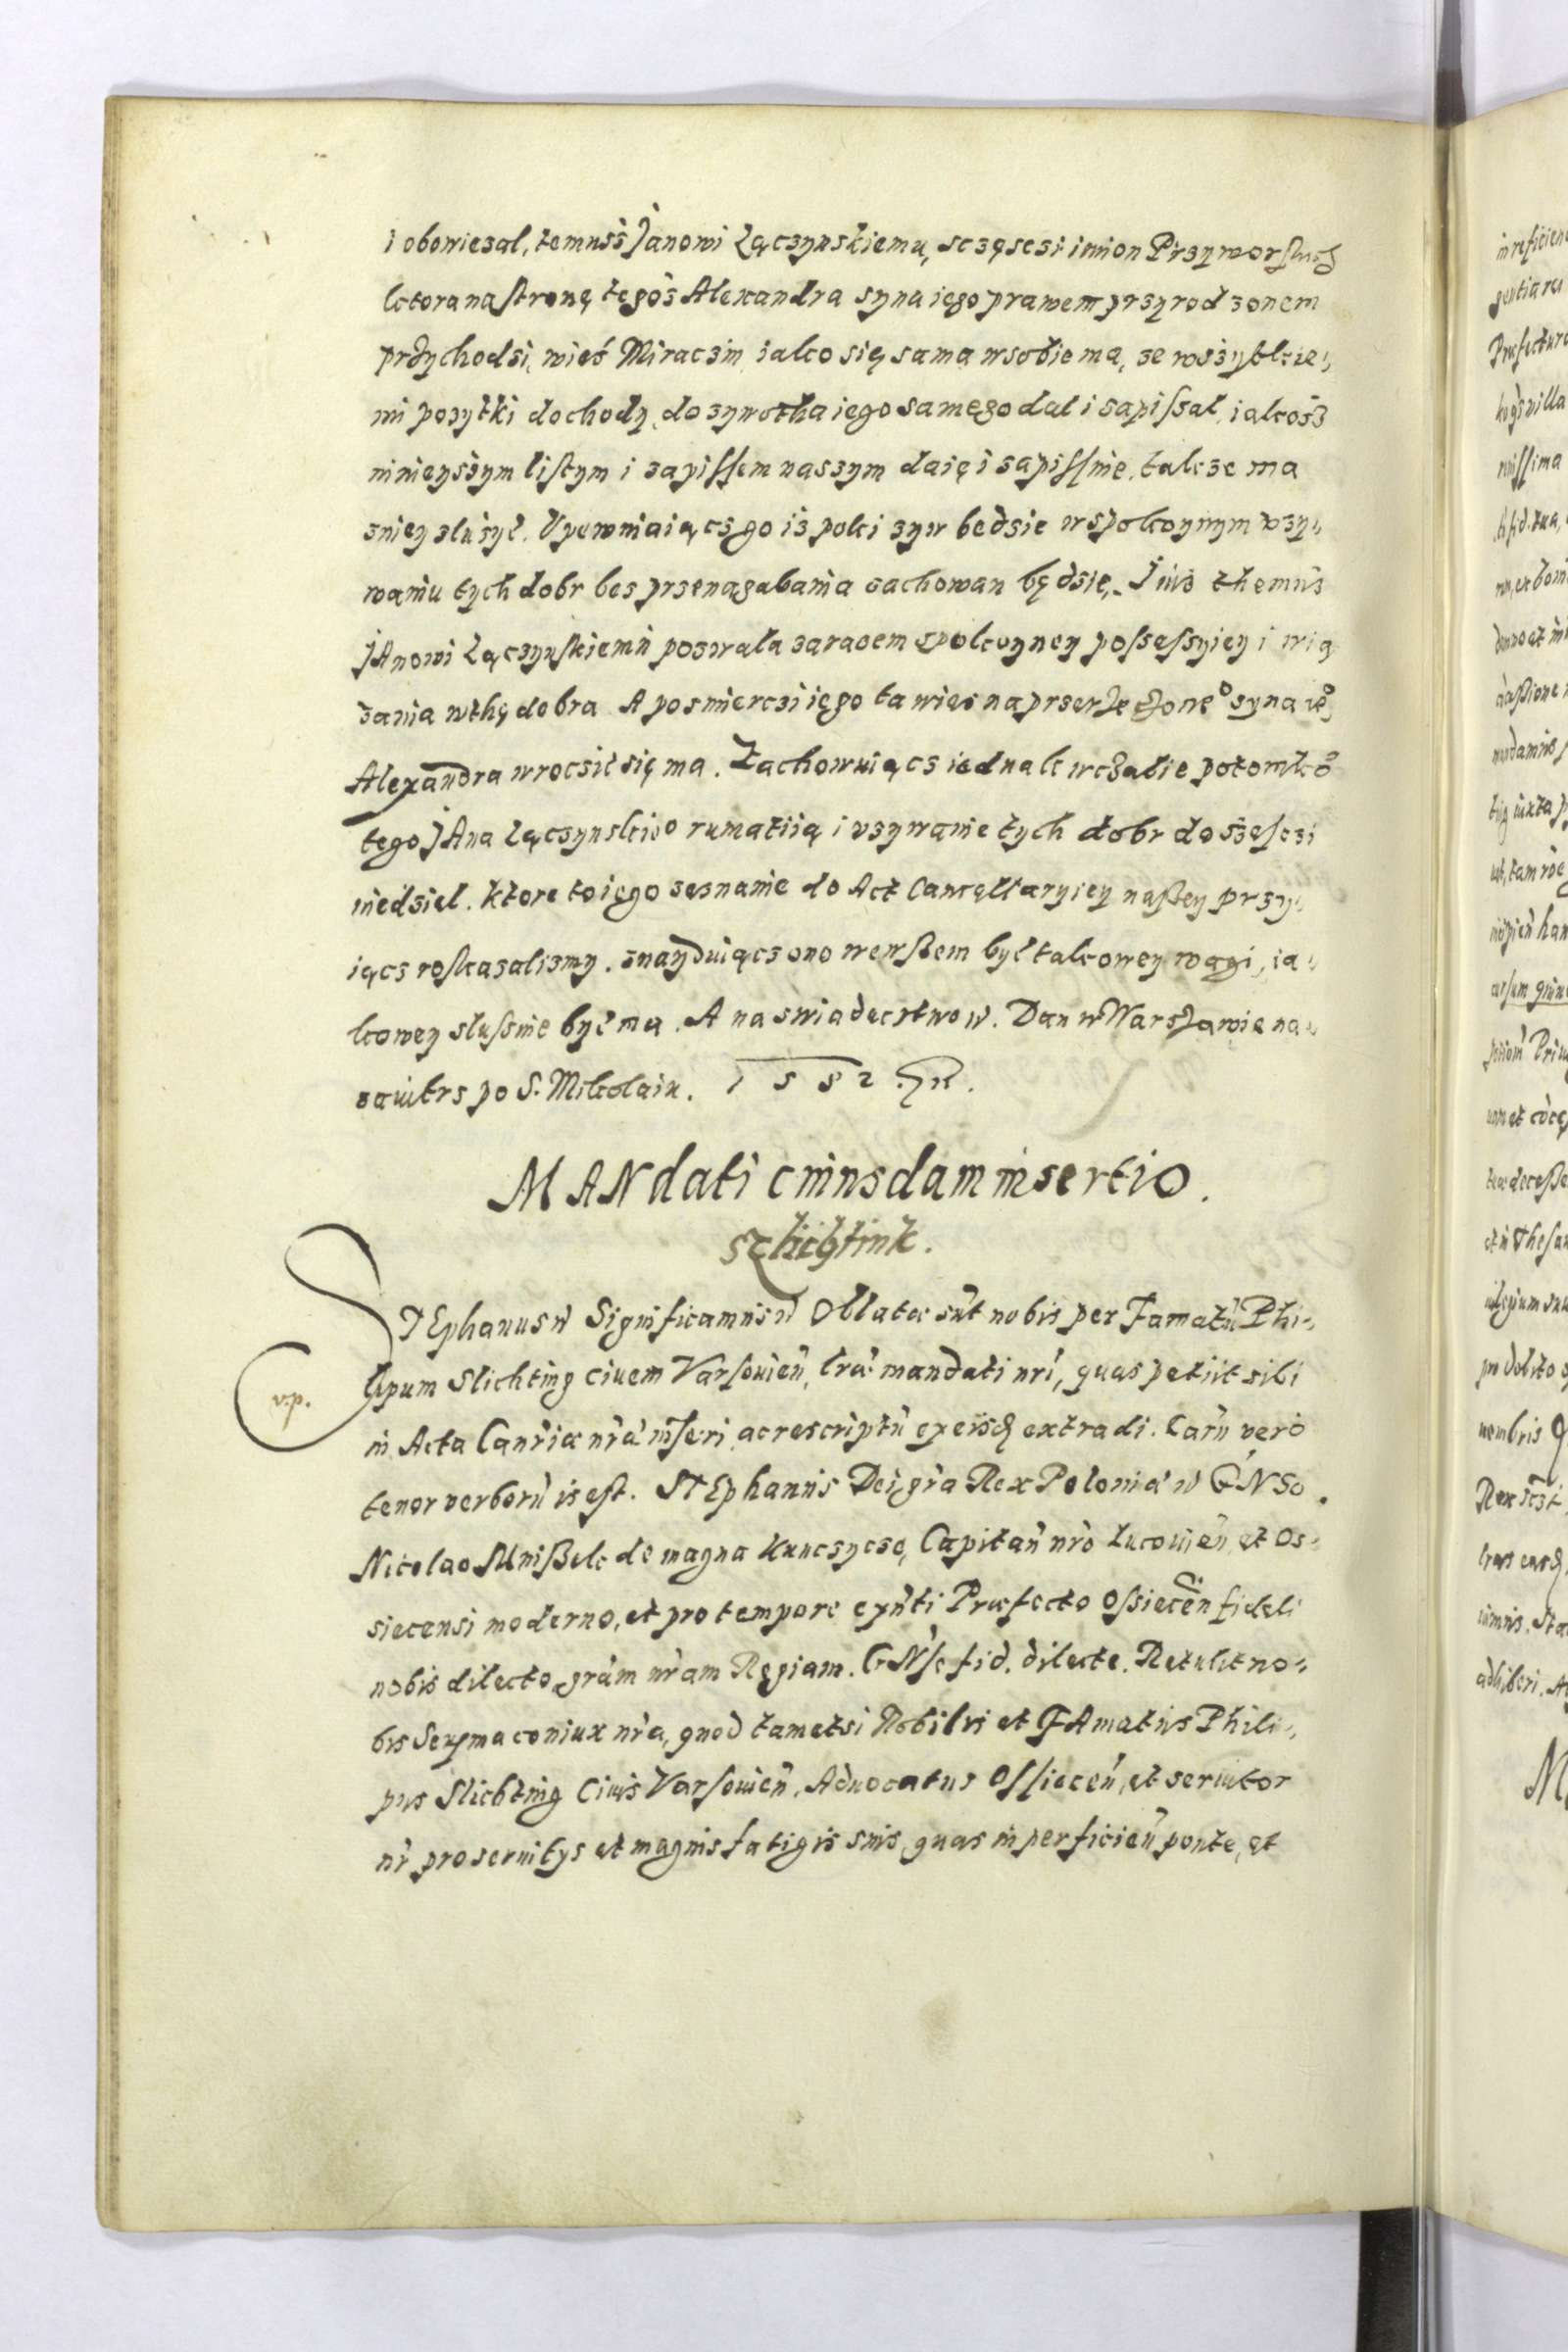 i obowiezal, temuss Janowi Lączynskiemu, sczęsczi imion Przyworskich
ktora na stronę tegos Alexandra syna iego prawem przyrodzonem
przychodzi, wieś Miraczin iako się sama w sobie ma, ze wszytkie„
mi pozytki dochody, do zywotha iego samego dal i zapissal, iakosz
ninieyszym listym i zapissem naszym daię i zapissuie, takze ma
zniey sluzyć. Vpewniaiącz go iz poki zyw bedzie w spokoynym vzy„
waniu tych dobr bes przenagabania zachowan będzie, I iuż themus
JAnowi Lączynskiemu pozwala zarazem spokoyney possessyiey i wią
zania w thę dobra A po smierczi iego ta wies na przerzeczone° syna ie°
Alexandra wrocsić się ma. Zachowuiącs iednak wczalie potomko
tego JAna Lączynskie° rumatiią i vzywanie tych dobr do szesczi
niedziel. Ktore to iego zesnanie do Act Cancellaryiey naßey przy„
iącs roskasalismy. znayduiącs ono wewßem być takowey wagi, ia„
kowey slussnie być ma. A na swiadecstwo w. Dan w Warszawie na„
zaiutrs po S. Mikolaiu. 1582.
MANdati cuiusdam insertio.
Szlichtink.
STEphanus w Significamus w Oblatæ sūt nobis per Famatū Phi„
v.p.
lipum Slichting ciuem Varsouieñ, lræ mandati nri, quas petiit sibi
in Acta Canriæ nræ inseri, ac rescriptū ex eisdq extradi. Earū vero
tenor verborū is est. STEphanus Dei gra Rex Poloniæ w GNSO.
Nicolao Mnißek de magna Kunczycze, Capitañ nro Lucouieñ, et Os„
siecensi moderno, et pro tempore exñti Præfecto Ossieceñ fideli
nobis dilecto, gram nram Regiam. GNse fid. dilecte. Retulit no„
bis Serma coniux nra, quod tametsi Nobilis et FAmatus Phili„
pus Slichting Ciuis Varsouieñ, Aduocatus Ossieceñ, et seruitor
nr pro seruitys et magnis fatigis suis, quas in perficieñ ponte, et